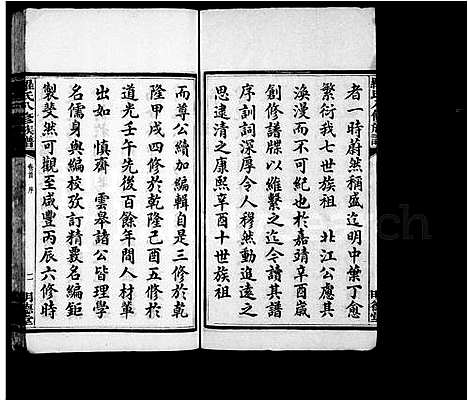 者一時蔚然稱盛迄明中葉丁愈
繁衍我七世族祖 北江公慮其
渙漫而不可紀也於嘉靖辛酉歲
創修譜牒以維繫之迄今讀其譜
序訓詞深厚令人穆然動追遠之
思逮清之康熙辛酉十世族祖
而尊公續加編輯自是三修於乾
隆甲戌四修於乾隆己酉五修於
道光壬午先後百餘年間人材萃
出如 慎齋 雲皋諸公皆理學
名儒身與編校攷訂精覈名編鉅
製斐然可觀至咸豐丙辰六修時
羅氏八修族譜
卷首 序
七
明德堂